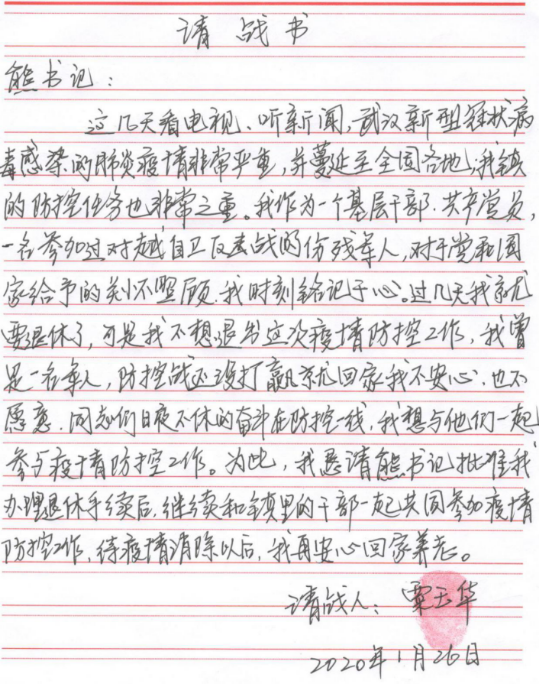 请战书
熊书记：
这几天看电视、听新闻，武汉新型冠状病
毒感染的肺炎疫情非常严重，并蔓延至全国各地，我镇
的防控任务也非常之重。我作为一个基层干部、共产党员，
一名参加过对越自卫反击战的伤残军人，对于党和国
家给予的关怀照顾，我时刻铭记于心。过几天我就
要退休了，可是我不想退出这次疫情防控工作，我曾
是一名军人，防控战还没打赢就回家我不安心，也不
愿意，同志们日夜不休的奋斗在防控一线，我想与他们一起
参与疫情防控工作。为此，我恳请熊书记批准我
办理退休手续后，继续和镇里的干部一起共同参加疫情
防控工作，待疫情消除以后，我再安心回家养老。
请战人：栗玉华
2020年1月26日